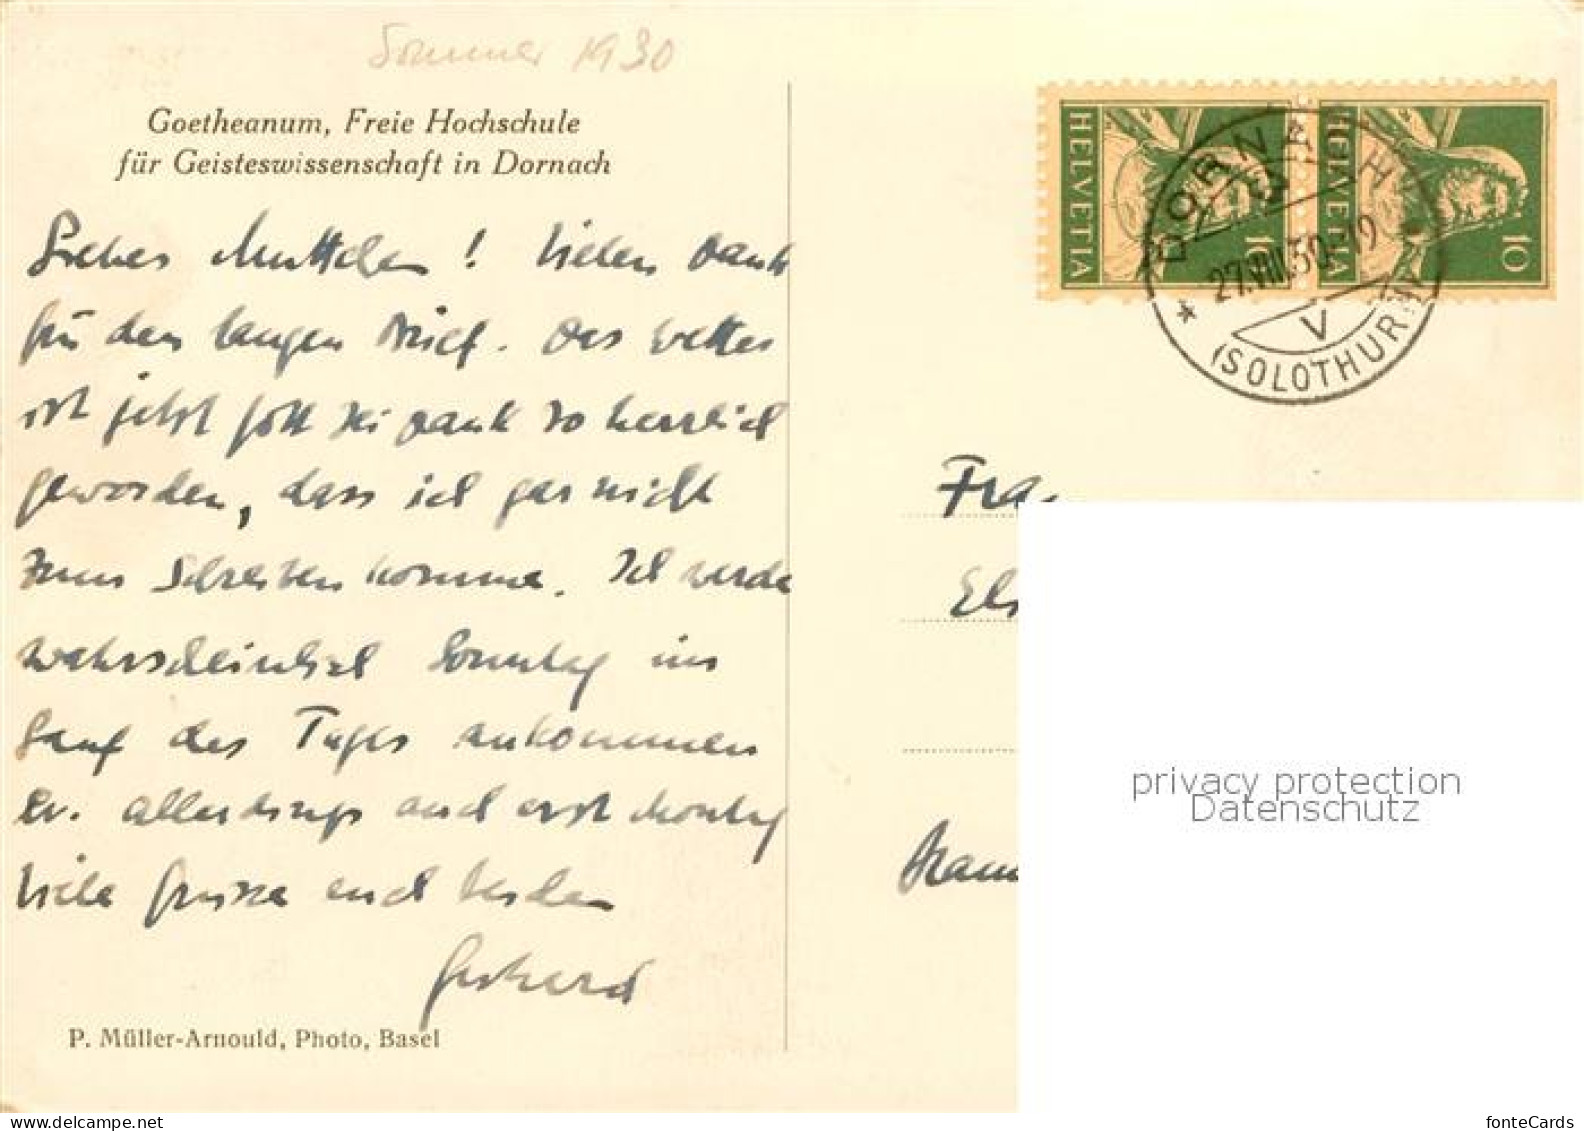 Sommer 1930
Goetheanum, Freie Hochschule
für Geisteswissenschaft in Dornach
Liebes Muttchen! Vielen Dank
für den langen Brief. Das Wetter
ist jetzt Gott sei Dank so herrlich
geworden, dass ich gar nicht
zum Schreiben komme. Ich werde
wahrscheinlich Sonntag im
Lauf des Tages ankommen
ev. allerdings auch erst Montag
Viele Grüsse euch beiden
Gerhard
P. Müller-Arnould, Photo, Basel
HELVETIA 10
HELVETIA 10
DORNACH
27.VIII.30.-19
V
(SOLOTHURN)
Frau
privacy protection
Datenschutz
fonteCards